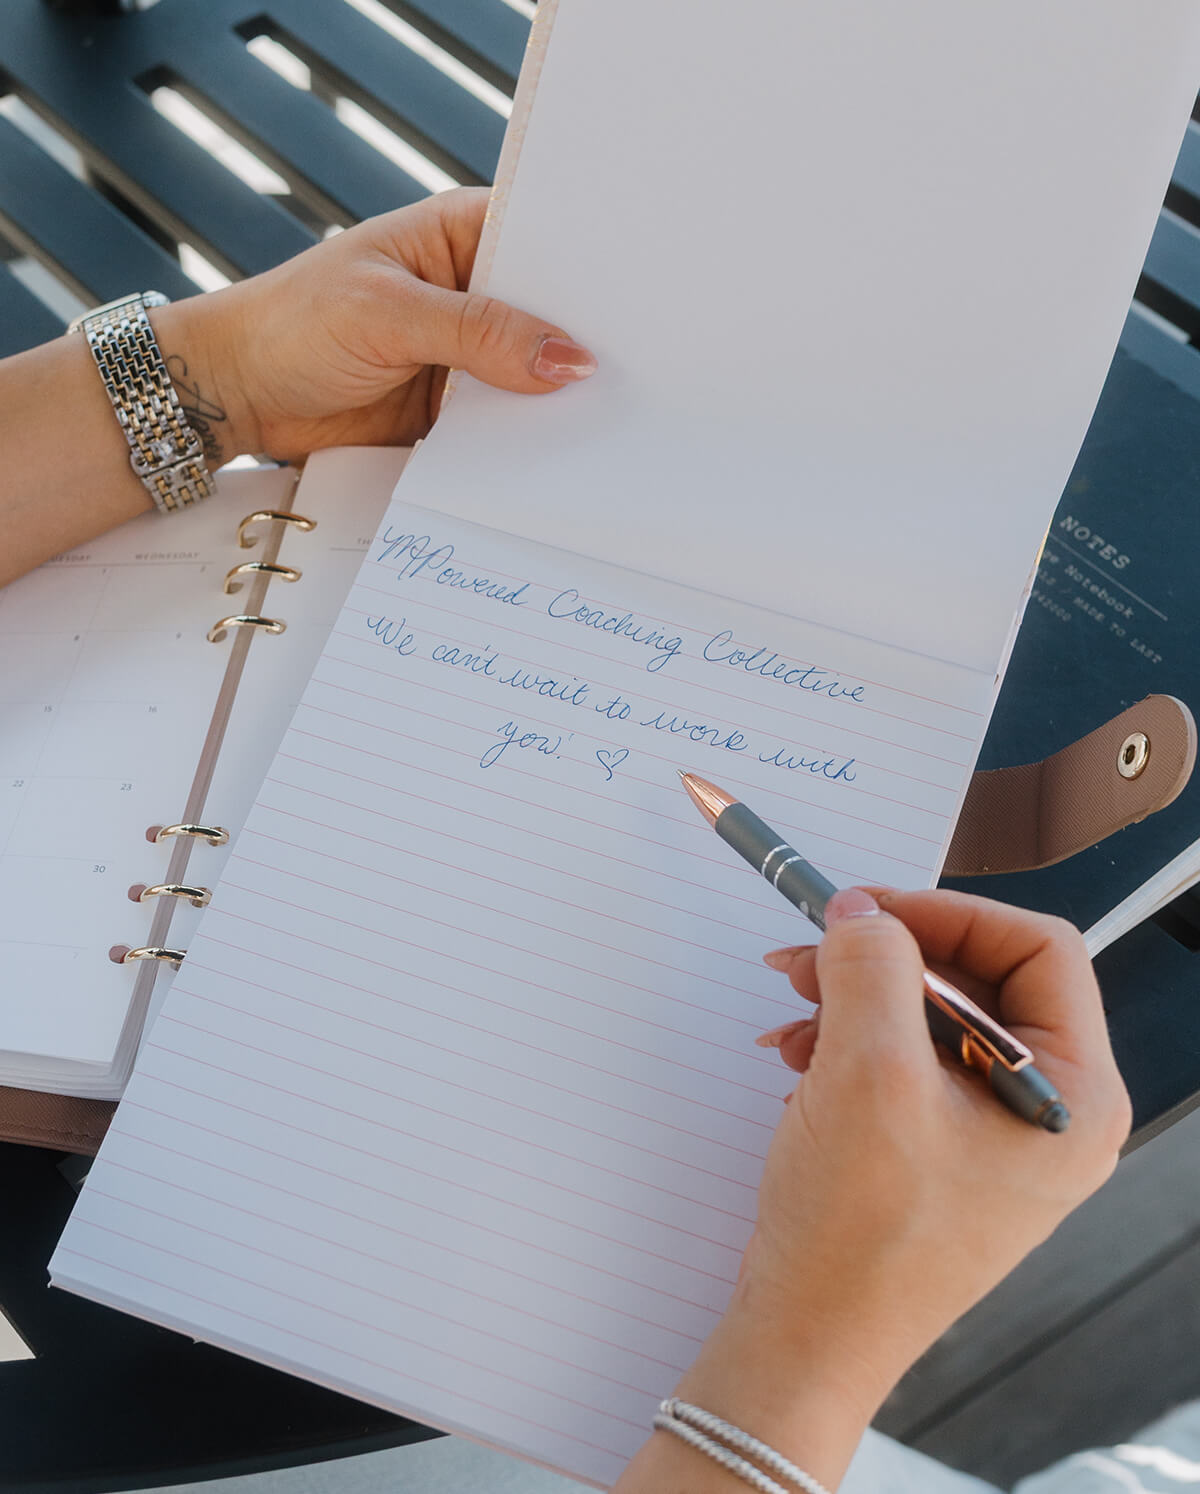 MPowered Coaching Collective
We can't wait to work with
you! ♡
WEDNESDAY
1
2
8
9
15
16
22
23
30
7
TH
NOTES
Notebook
MADE TO LAST